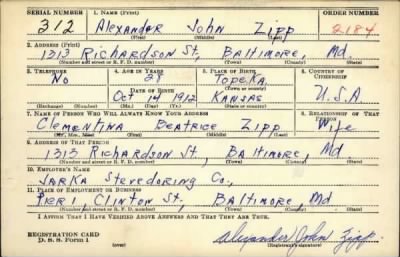 SERIAL NUMBER 1. NAME (Print) ORDER NUMBER
312 Alexander John Zipp 2184
(First) (Middle) (Last)
2. ADDRESS (Print)
1313 Richardson St., Baltimore, Md.
(Number and street or R. F. D. number) (Town) (County) (State)
3. TELEPHONE 4. AGE IN YEARS 5. PLACE OF BIRTH 6. COUNTRY OF CITIZENSHIP
No 28 Topeka
DATE OF BIRTH (Town or county)
Oct 14 1912 Kansas U.S.A
(Mo.) (Day) (Yr.) (State or country)
7. NAME OF PERSON WHO WILL ALWAYS KNOW YOUR ADDRESS 8. RELATIONSHIP OF THAT PERSON
Clementina Beatrice Zipp Wife
(Mr., Mrs., Miss) (First) (Middle) (Last)
9. ADDRESS OF THAT PERSON
1313 Richardson St., Baltimore, Md
(Number and street or R. F. D. number) (Town) (County) (State)
10. EMPLOYER'S NAME
Jarka Stevedoring Co.,
11. PLACE OF EMPLOYMENT OR BUSINESS
Pier 1, Clinton St., Baltimore, Md
(Number and street or R. F. D. number) (Town) (County) (State)
I AFFIRM THAT I HAVE VERIFIED ABOVE ANSWERS AND THAT THEY ARE TRUE.
REGISTRATION CARD
D. S. S. Form 1
Alexander John Zipp
(Registrant's signature)